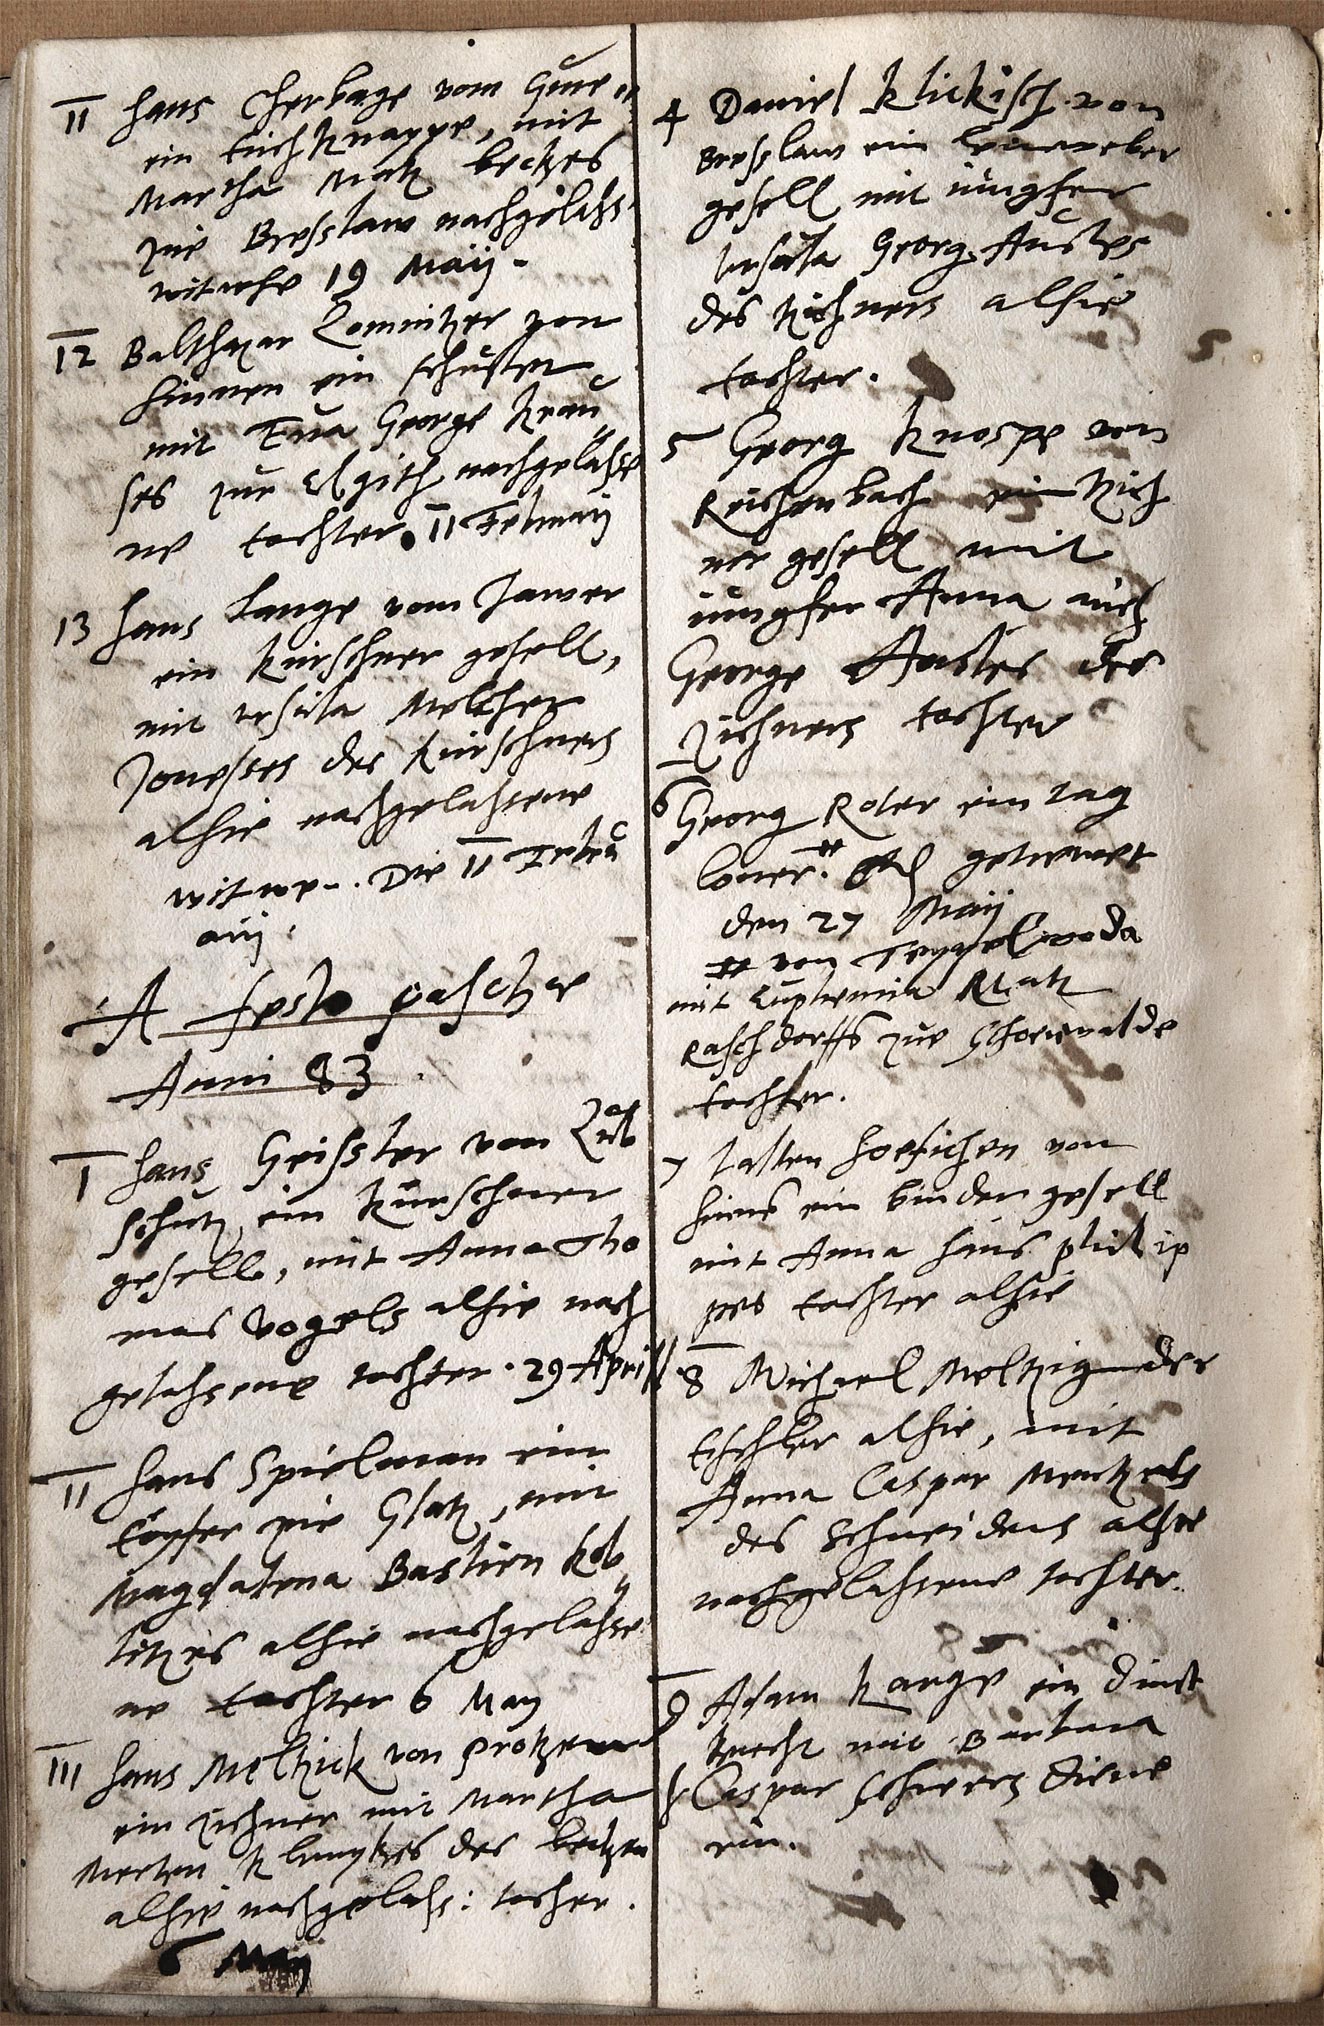 11 Hans Cherbage vom Gure
ein tuchknappe, mit
Martha Matz beckes
zue Bresslaw nachgelass
witwe 19 Maÿ
12 Balthazar Lomnitzer von
hinnen ein schuster
mit Eua George Krau
ses zur nachgelasse
ne tochter. 11 Februarij
13 Hans Lange vom Jawer
ein Kürschner gesell,
mit Ursula Melcher
des Kürschners
alhie nachgelassene
witwe. Die 11 Febru
arij.
A festo paschae
Anni 83
I Hans Geissler von Leob
schutz ein Kürschner
gesell, mit Anna Tho
mas Vogels alhie nach
gelassene tochter. 29 April
II Hans Spielman ein
töpfer zue Glatz, mit
Magdalena Bastien Kob
litzes alhie nachgelasse
ne tochter 6 May
III Hans Meltzick von Protzen
ein zichner mit Martha
Merten des becken
alhie nachgelass: tocher.
6 May
4 Daniel Klickisch von
Bresslaw ein leineweber
gesell mit jungfer
Ursula Georg Austes
des zichners alhie
tochter.
5 Georg Knospe von
Reichenbach ein zich
ner gesell mit
jungfer Anna auch
George Austes des
zichners tochter
6 Georg Roter ein tag
loner. getrewet
den 27 Maÿ
von Teppelwoda
mit Euphemia Matz
Raschdorffs zue Schonwalde
tochter.
7 von
hinne ein binder gesell
mit Anna Hans Philip
pes tochter alhie
8 Michael Meltzig der
tischler alhie, mit
Anna Caspar Mentzels
des Schneiders alhie
nachgelassene tochter.
9 Adam Range ein dinst
knecht mit Barbara
Caspar Scherers diene
rin.